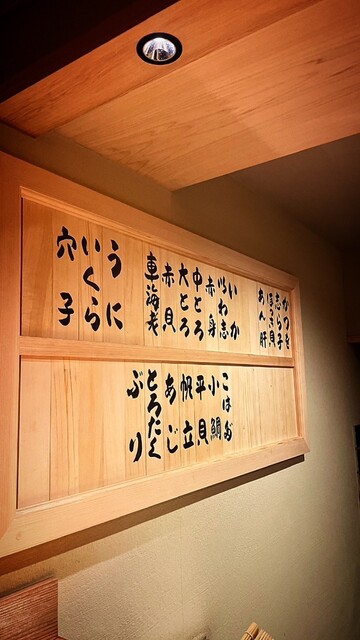 かつを
志ら子
ほっき貝
あん肝
いか
いわ志
赤身
中とろ
大とろ
赤貝
車海老
うに
いくら
穴子
こはだ
小鯛
平貝
帆立
あじ
とろたく
ぶり